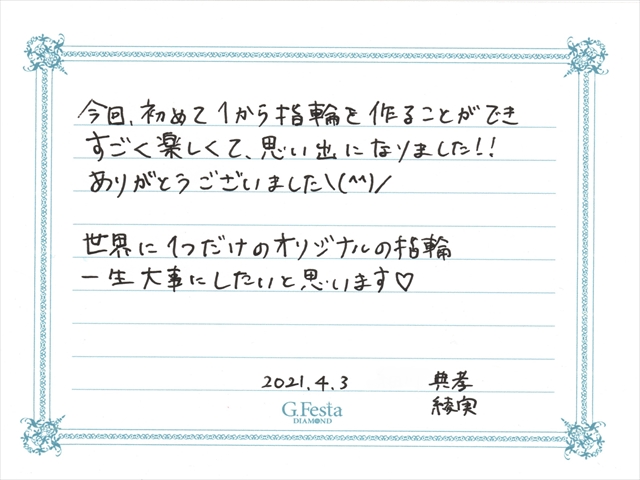 今回、初めて1から指輪を作ることができ
すごく楽しくて、思い出になりました!!
ありがとうございました\(^^)/
世界に1つだけのオリジナルの指輪
一生大事にしたいと思います♡
2021.4.3
典孝
綾実
G.Festa
DIAMOND